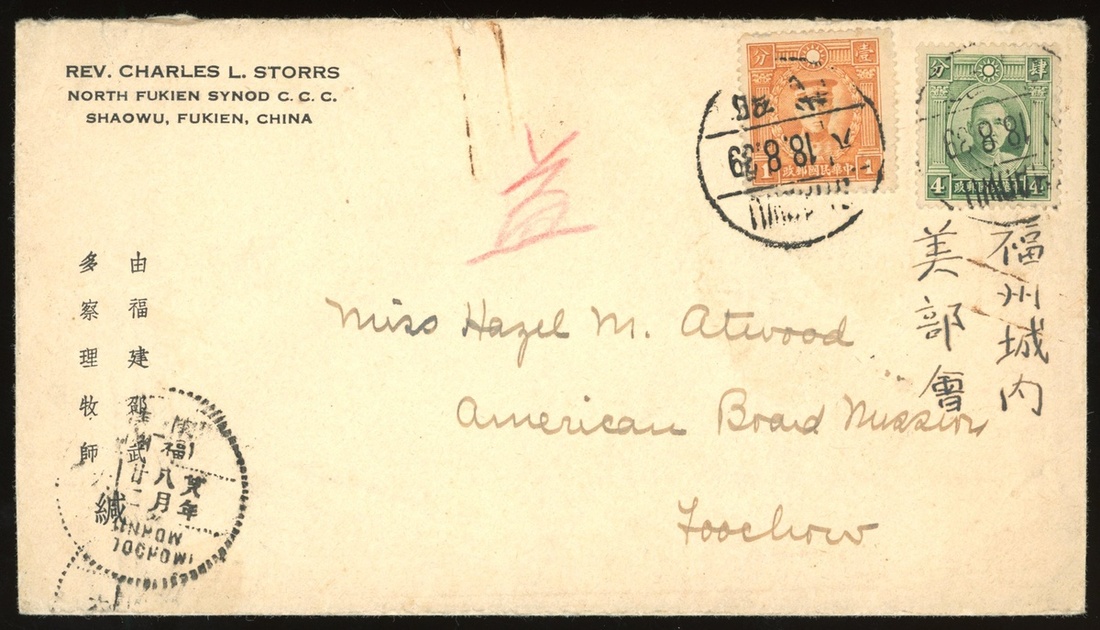 REV. CHARLES L. STORRS
NORTH FUKIEN SYNOD C. C. C.
SHAOWU, FUKIEN, CHINA
壹
分
1
1
政郵國民華中
18.8.39
肆
分
4
4
18.8.39
益
福州城内
美部會
Miss Hazel M. Atwood
American Board Mission
Foochow
由福建邵武
多察理牧師
緘
福
八
年
月
二